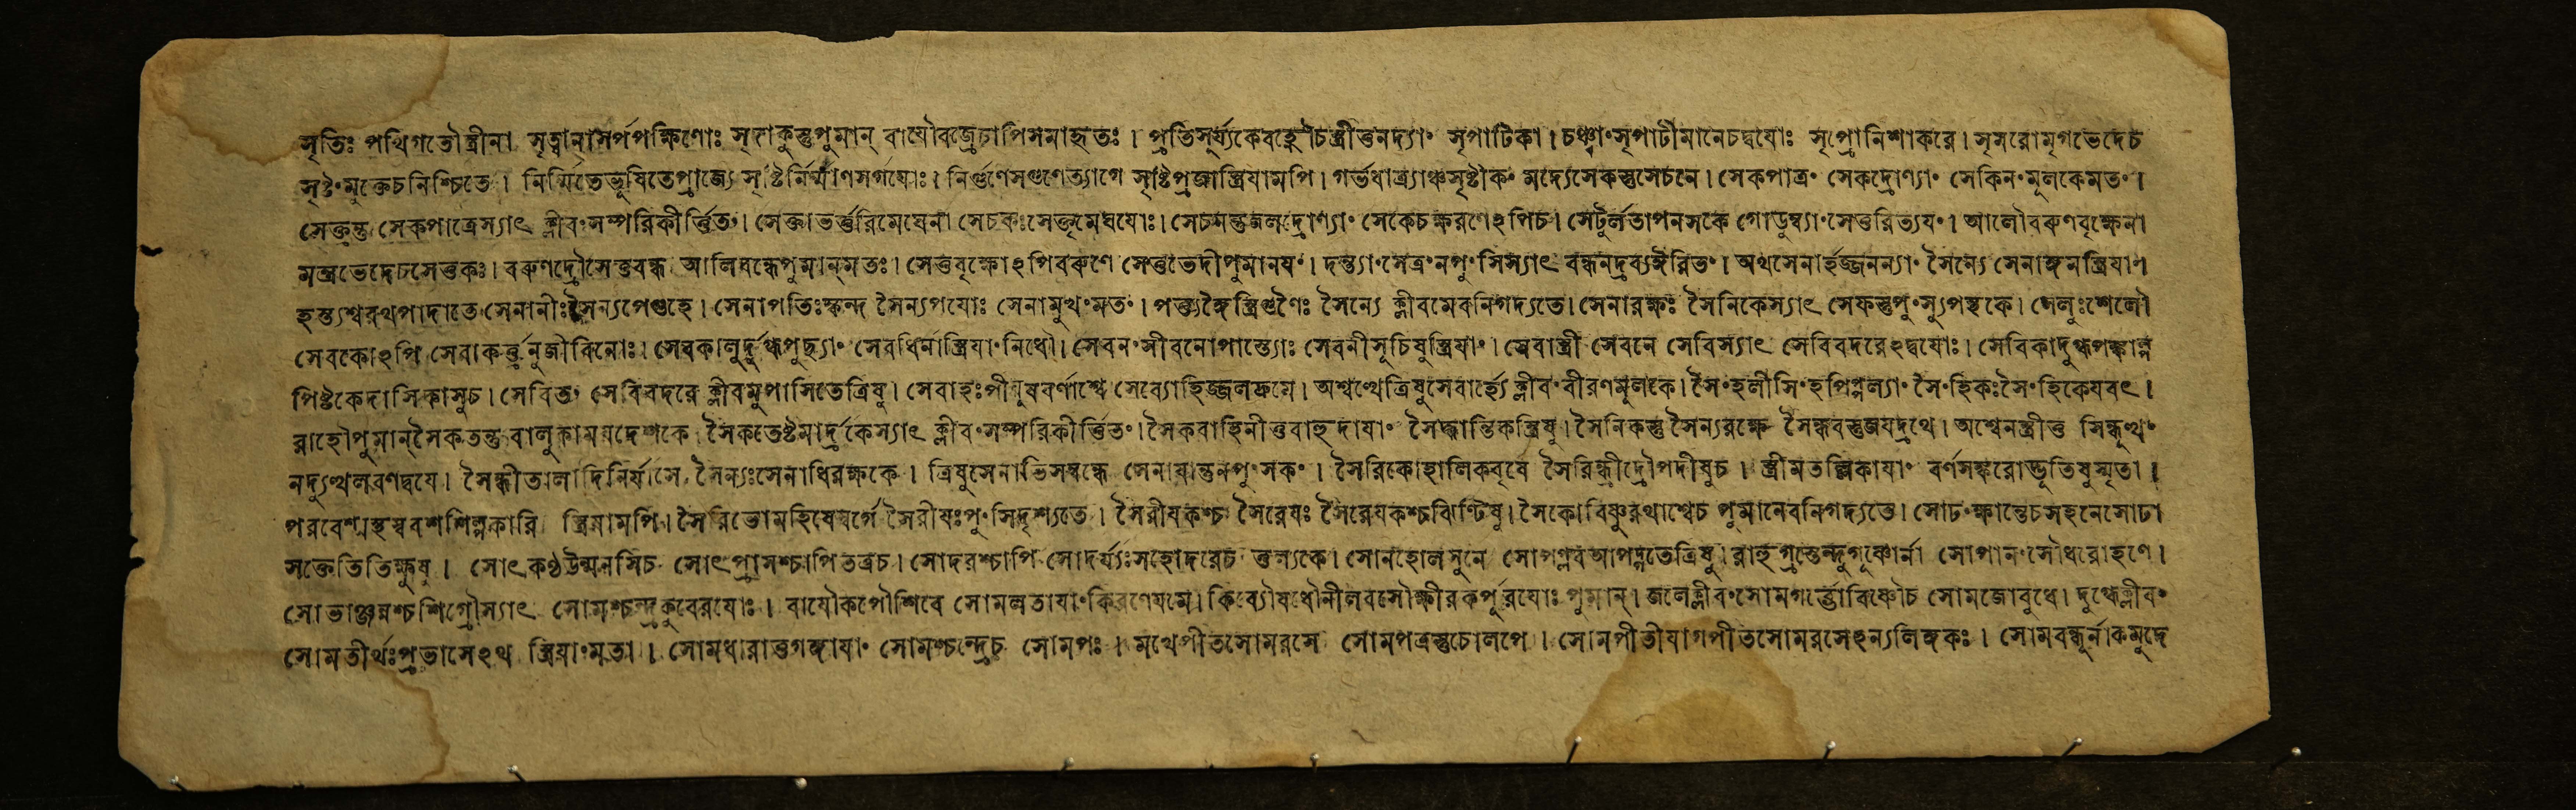 সৃতিঃ পথিগতৌস্ত্রীনা সৃত্বানাসর্পপক্ষিণোঃ সৃদাকুস্তুপুমান্ বাযৌবজ্রেচাপিসমাহৃতঃ । প্রতিসূর্য্যকেবহ্নৌচস্ত্রীত্তনদ্যা° সৃপাটিকা । চঞ্চ্বা°সৃপাটীমানেচদ্বযোঃ সৃপ্রোনিশাকরে । সৃমরোমৃগভেদেচ
সৃষ্ট°মুক্তেচনিশ্চিতে । নির্ম্মিতেভূষিতেপ্রাজ্যে সৃষ্টির্নির্ম্মাণসর্গযোঃ । নির্গুণেসগুণেত্যাগে সৃষ্টিপ্রজাস্ত্রিযামপি । গর্ত্তধাত্র্যাঞ্চসৃষ্টীক° মদ্যেসেকস্তুসেচনে । সেকপাত্র° সেকদ্রোণ্যা° সেকিন°মূলকেমত° ।
সেক্ত্রন্তু সেকপাত্রেস্যাৎ ক্লীব°সম্পরিকীর্ত্তিত° । সেক্তাভর্ত্তরিমেঘেনা সেচকঃসেক্তৃমেঘযোঃ । সেচনন্তুজলদ্রোণ্যা° সেকেচক্ষরণেঽপিচ । সেটুর্লতাপনসকে গোডুম্ব্যা°সেত্তরিত্যয° । আলৌবরুণবৃক্ষেনা
মন্ত্রভেদেচসেত্তকঃ । বরুণদ্রৌসেত্তবন্ধ আলিবন্ধেপুমান্মতঃ । সেত্তবৃক্ষোঽপিবরুণে সেত্তভেদীপুমানয° । দন্ত্যা°সেত্র°নপু°সিস্যাৎ বন্ধনদ্রব্যঈরিত° । অথসেনার্হজ্জনন্যা° সৈন্যে সেনাঙ্গনস্ত্রিযা°
হস্ত্যশ্বরথপাদাতে সেনানীঃসৈন্যপেগুহে । সেনাপতিঃস্কন্দ সৈন্যপযোঃ সেনামুখ°মত° । পত্ত্যঙ্গৈস্ত্রিগুণৈঃ সৈন্যে ক্লীবমেবনিগদ্যতে । সেনারক্ষঃ সৈনিকেস্যাৎ সেফস্তুপু°স্যুপস্থকে । সেলুঃশেলৌ
সেবকোঽপি সেবাকর্ত্ত্রনুজীবিনোঃ । সেবকালুর্দুগ্ধপুছ্যা° সেবধির্নাস্ত্রিযা°নিধৌ । সেবন°সীবনোপাস্ত্যোঃ সেবনীসূচিষুস্ত্রিযা° । সেবাস্ত্রী সেবনে সেবিস্যাৎ সেবিবদরেঽদ্বযোঃ । সেবিকাদুগ্ধপক্কান্ন
পিষ্টকেদাসিকাসুচ । সেবিত° সেবিবদরে ক্লীবমুপাসিতেত্রিষু । সেবাহঃপীযুষবর্ণাশ্বে সেব্যোহিজ্জলদ্রুমে । অশ্বত্থেত্রিষুসেবার্হ্যে ক্লীব°বীরণমূলকে । সৈ°হলীসি°হপিপ্পল্যা° সৈ°হিকঃসৈ°হিকেযবৎ ।
রাহৌপুমান্সৈকতন্তু বালুকামযদেশকে সৈকতেষ্টমার্দ্রকেস্যাৎ ক্লীব°সম্পরিকীর্ত্তিত° । সৈকবাহিনীত্তবাহুদাযা° সৈদ্ধান্তিকস্ত্রিষু । সৈনিকস্তু সৈন্যরক্ষে সৈন্ধবস্তুজযদ্রথে । অশ্বেনস্ত্রীত্ত সিন্ধূত্থ°
নদ্যুত্থলবণদ্বযে । সৈন্ধীতালাদিনির্যাসে সৈন্যঃসেনাধিরক্ষকে । ত্রিষুসেনাভিসম্বন্ধে সেনাযান্তুনপু°সক° । সৈরিকোহালিকবৃষে সৈরিন্ধ্রীদ্রৌপদীষুচ । স্ত্রীমতল্লিকাযা° বর্ণসঙ্করোদ্ভূতিষুস্মৃতা ।
পরবেশ্মস্থস্ববশশিল্পকারি স্ত্রিযামপি । সৈরিভোমহিষেস্বর্গে সৈরীযঃপু°সিদৃশ্যতে । সৈরীযকশ্চ সৈরেযঃ সৈরেযকশ্চঝিণ্টিষু । সৈকোবিষ্ণুরথাশ্বেচ পুমানেবনিগদ্যতে । সোঢ°ক্ষান্তেচসহনেসোঢা
সক্তেতিতিক্ষুষু । সোৎকণ্ঠউন্মনসিচ সোৎপ্রাসশ্চাপিতত্রচ । সোদরশ্চাপি সোদর্য্যঃসহোদরেচ ত্তল্যকে । সোনহোলসুনে সোপপ্লবআপদ্গতেত্রিষু । রাহুগ্রস্তেন্দুগুষ্ণোর্না সোপান°সৌধরোহণে ।
সোভাঞ্জনশ্চশিগ্রৌস্যাৎ সোমশ্চন্দ্রকুবেরযোঃ । বাযৌকপৌশিবে সোমলতাযা°কিরণেযমে । কিব্যৌষধৌনীলবসৌক্ষীরকর্পূরযোঃ পুমান্ । জলেক্লীব°সোমগর্ত্তোবিষ্ণৌচ সোমজোবুধে । দুগ্ধেক্লীব°
সোমতীর্থঃপ্রভাসেঽথ স্ত্রিযা°মতা । সোমধারাত্তগঙ্গাযা° সোমশ্চন্দ্রেচ সোমপঃ । মখেপীতসোমরসে সোমপত্রস্তুচোলপে । সোমপীতীযাগপীতসোমরসেঽন্যলিঙ্গকঃ । সোমবন্ধুর্নাকমুদে